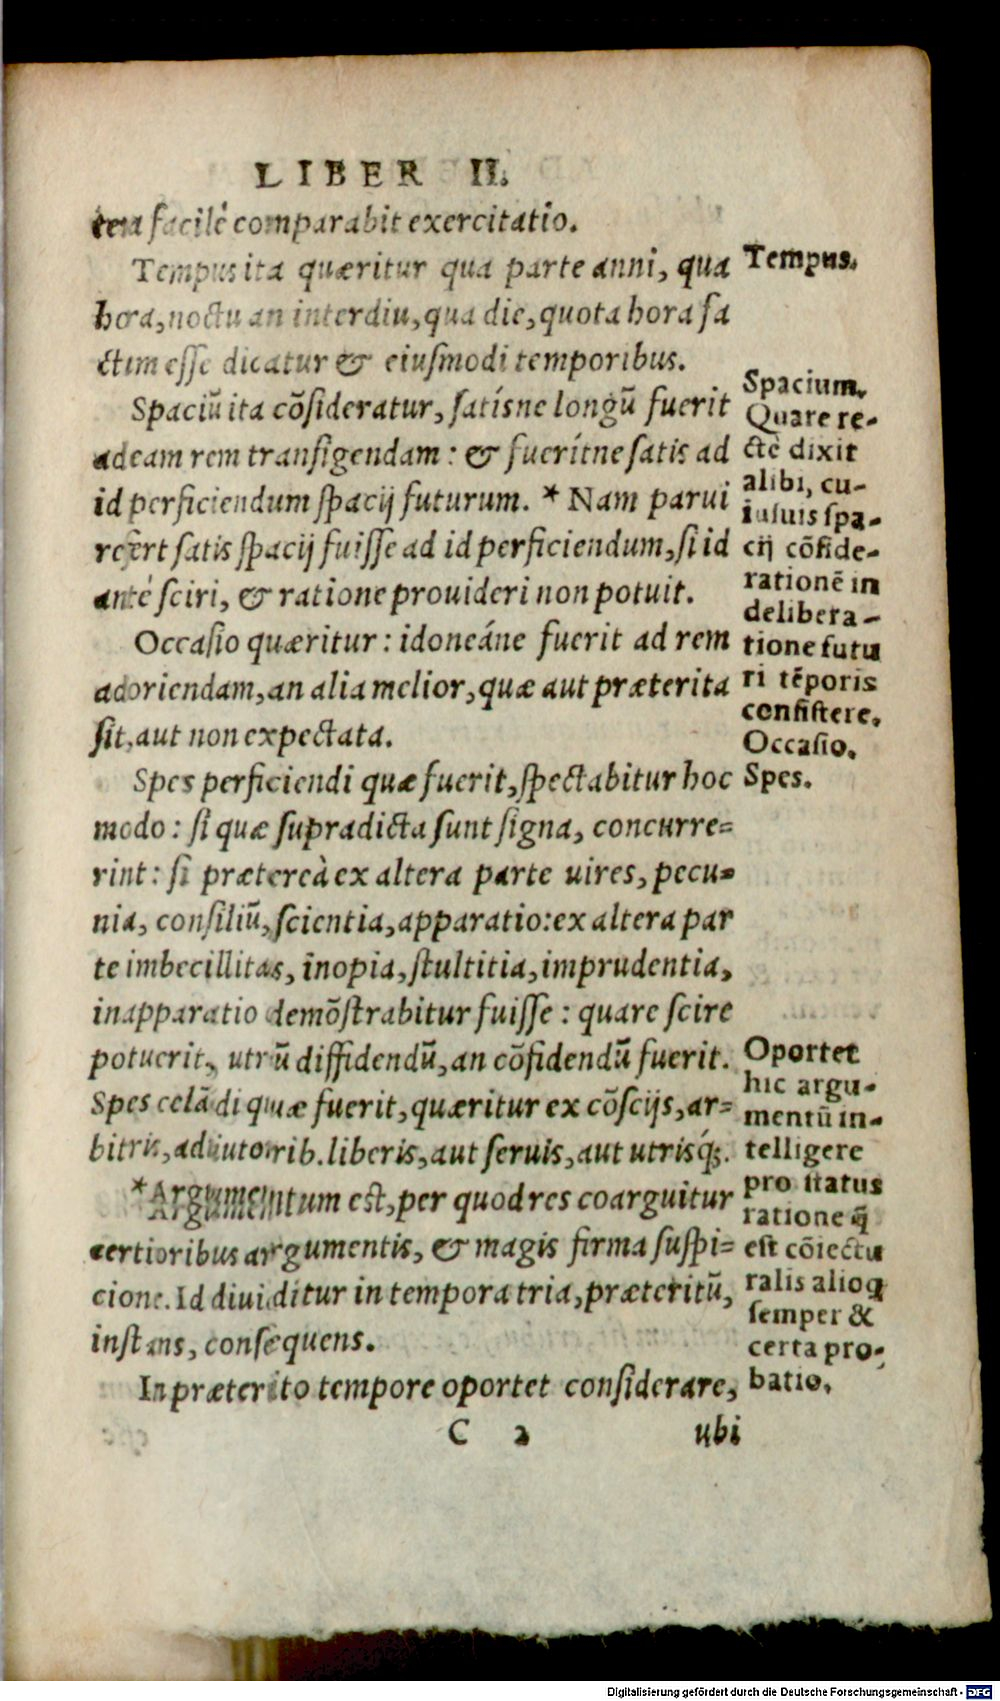 LIBER II.
tera facilè comparabit exercitatio.
Tempus ita quæritur qua parte anni, qua
hora, noctu an interdiu, qua die, quota hora fa
ctum esse dicatur & eiusmodi temporibus.
Spaciũ ita cõsideratur, satísne longũ fuerit
ad eam rem transigendam: & fuerítne satis ad
id perficiendum spacij futurum. * Nam parui
refert satis spacij fuisse ad id perficiendum, si id
antè sciri, & ratione prouideri non potuit.
Occasio quæritur: idoneáne fuerit ad rem
adoriendam, an alia melior, quæ aut præterita
sit, aut non expectata.
Spes perficiendi quæ fuerit, spectabitur hoc
modo: si quæ supradicta sunt signa, concurre=
rint: si prætereà ex altera parte uires, pecu=
nia, consiliũ, scientia, apparatio: ex altera par
te imbecillitas, inopia, stultitia, imprudentia,
inapparatio demõstrabitur fuisse: quare scire
potuerit, utrũ diffidendũ, an cõfidendũ fuerit.
Spes celãdi quæ fuerit, quæritur ex cõscijs, ar=
bitris, adiutorib. liberis, aut seruis, aut utrisq́;.
*Argumentum est, per quod res coarguitur
certioribus argumentis, & magis firma suspi=
cione. Id diuiditur in tempora tria, præteritũ,
instans, consequens.
In præterito tempore oportet considerare,
C 2 ubi
Tempus.
Spacium.
Quare re-
ctè dixit
alibi, cu-
iusuis spa-
cij cõside-
rationẽ in
delibera-
tione futu
ri tẽporis
consistere.
Occasio.
Spes.
Oportet
hic argu-
mentũ in-
telligere
pro status
ratione q̃
est cõiectu
ralis alioq
semper &
certa pro-
batio.
Digitalisierung gefördert durch die Deutsche Forschungsgemeinschaft - DFG